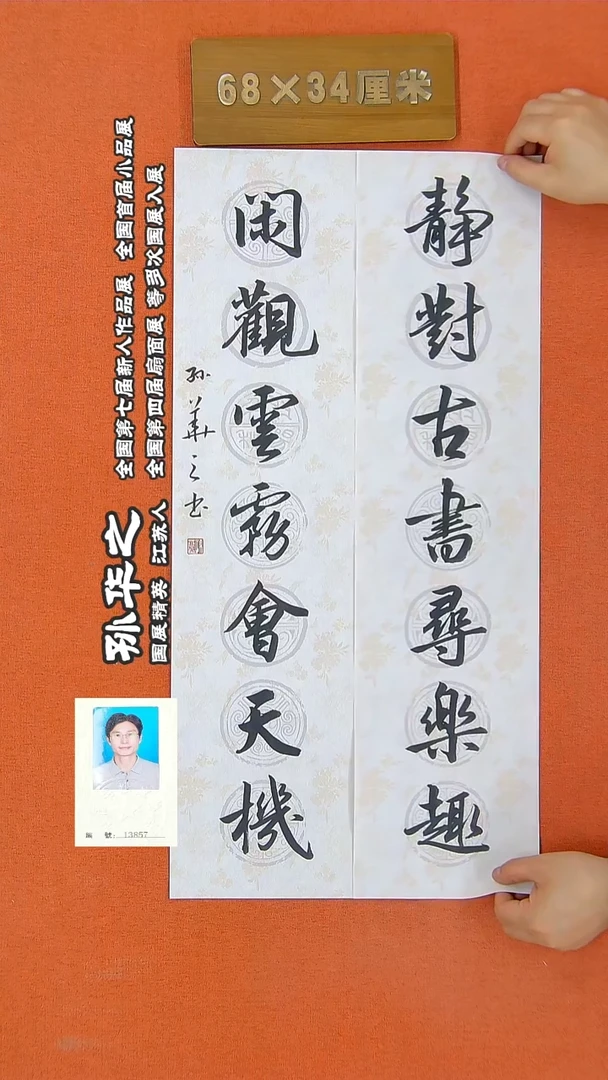 68×34厘米
静對古書尋樂趣
闲觀雲霧會天機
孙華之书
孙华之
国展精英 江苏人
全国第七届新人作品展 全国首届小品展
全国第四届扇面展 等多次国展入展
編 號：13857